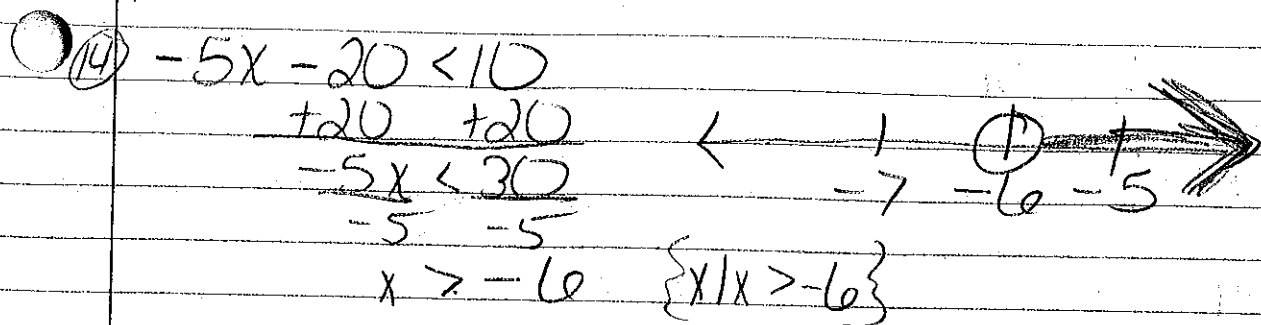 14 -5x - 20 < 10
+20 +20
-5x < 30
-5 -5
x > -6 {x|x > -6}
-7 -6 -5